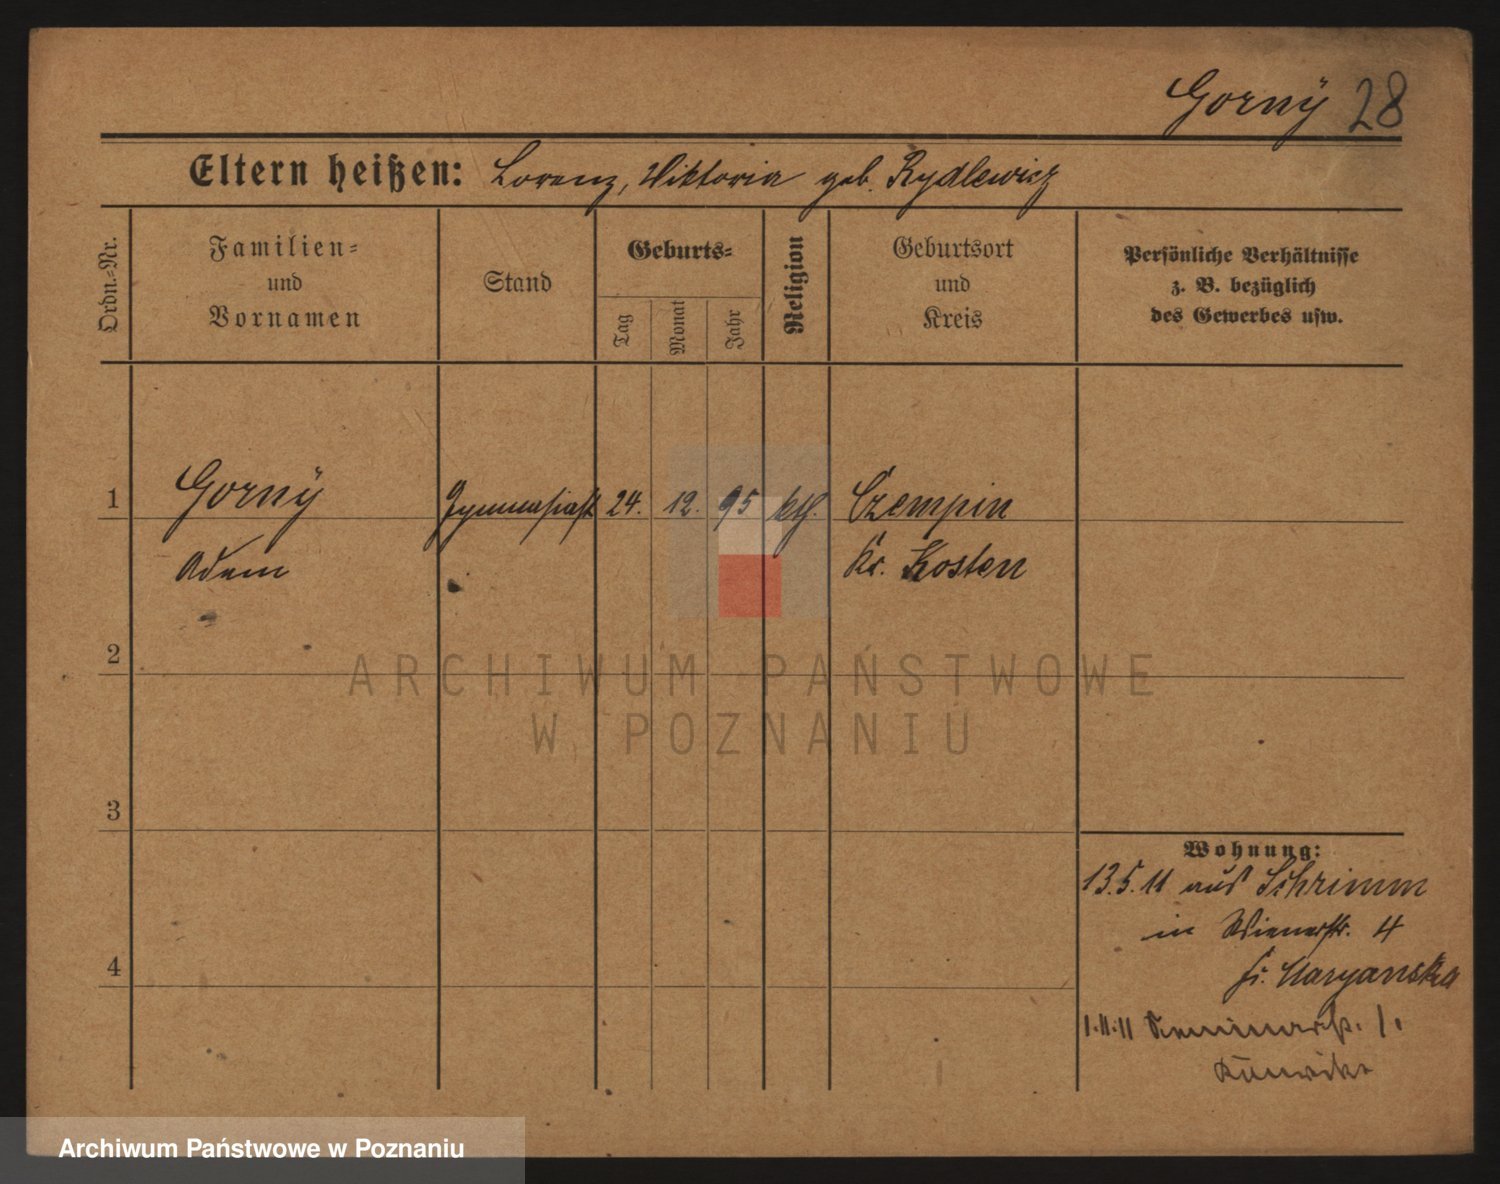 Gornÿ 28
Eltern heißen: Lorenz, Viktoria geb. Rydlewicz
Ordn.-Nr.
Familien-
und
Vornamen
Stand
Geburts-
Tag
Monat
Jahr
Religion
Geburtsort
und
Kreis
Persönliche Verhältnisse
z. B. bezüglich
des Gewerbes usw.
1 Gornÿ Gymnasiast 24. 12. 95 kth. Czempin
Adam Kr. Kosten
2
ARCHIWUM PAŃSTWOWE
W POZNANIU
3
Wohnung:
13.5.11 aus Schrimm
in Wienerstr. 4
4
fr. Maryanska
1.11.11 Seminarstr. 1.
Archiwum Państwowe w Poznaniu